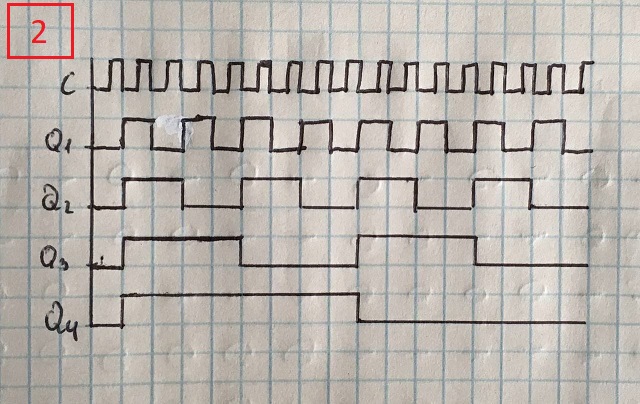 2
C
Q1
Q2
Q3
Q4